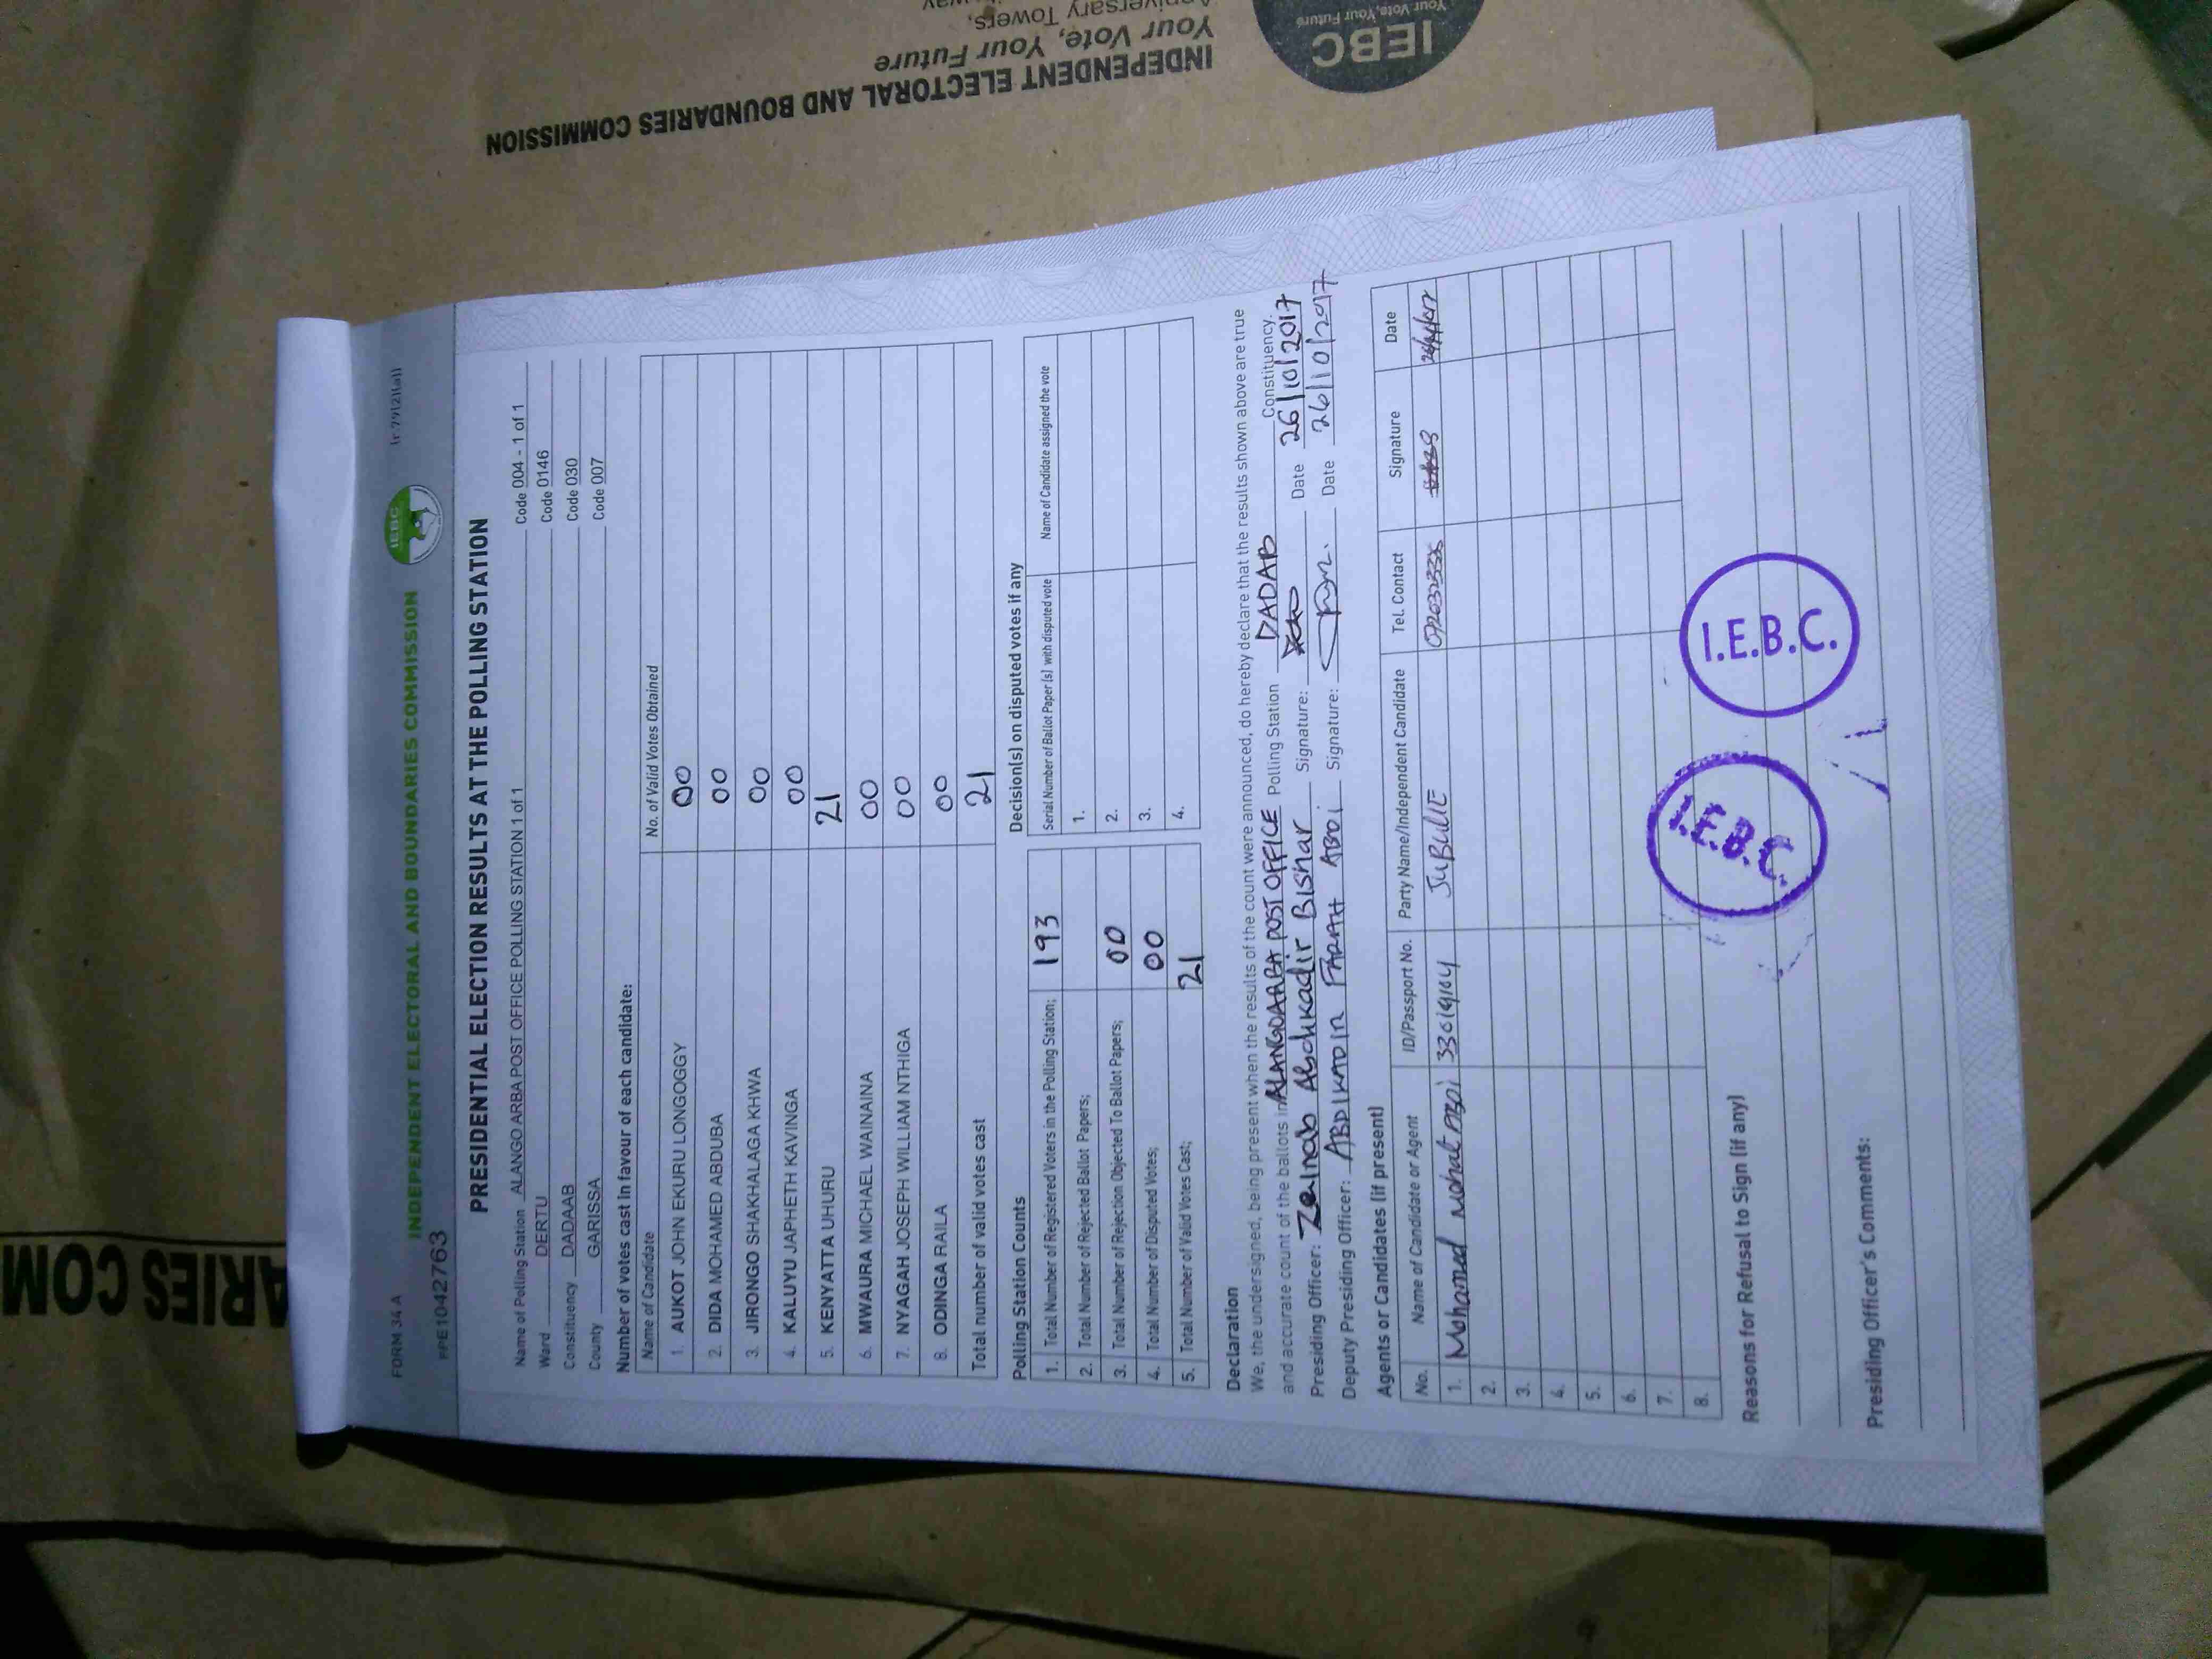 ARIES COM
INDEPENDENT ELECTORAL AND BOUNDARIES COMMISSION
Your Vote, Your Future
Anniversary Towers,
IEBC
Your Vote, Your Future
FORM 34 A
(r.79(2)(a))
INDEPENDENT ELECTORAL AND BOUNDARIES COMMISSION
IEBC
PPE1042763
PRESIDENTIAL ELECTION RESULTS AT THE POLLING STATION
Name of Polling Station ALANGO ARBA POST OFFICE POLLING STATION 1 of 1 Code 004 - 1 of 1
Ward DERTU Code 0146
Constituency DADAAB Code 030
County GARISSA Code 007
Number of votes cast in favour of each candidate:
Name of Candidate No. of Valid Votes Obtained
1. AUKOT JOHN EKURU LONGOGGY 00
2. DIDA MOHAMED ABDUBA 00
3. JIRONGO SHAKHALAGA KHWA 00
4. KALUYU JAPHETH KAVINGA 00
5. KENYATTA UHURU 21
6. MWAURA MICHAEL WAINAINA 00
7. NYAGAH JOSEPH WILLIAM NTHIGA 00
8. ODINGA RAILA 00
Total number of valid votes cast 21
Polling Station Counts
1. Total Number of Registered Voters in the Polling Station; 193
2. Total Number of Rejected Ballot Papers;
3. Total Number of Rejection Objected To Ballot Papers; 00
4. Total Number of Disputed Votes; 00
5. Total Number of Valid Votes Cast; 21
Decision(s) on disputed votes if any
Serial Number of Ballot Paper (s) with disputed vote Name of Candidate assigned the vote
1.
2.
3.
4.
Declaration
We, the undersigned, being present when the results of the count were announced, do hereby declare that the results shown above are true
and accurate count of the ballots in ALANGOARBA POST OFFICE Polling Station DADAB Constituency.
Presiding Officer: Zeinab Abdikadir Bishar Signature: Date 26/10/2017
Deputy Presiding Officer: ABDIKADIR FARAH ABDI Signature: Date 26/10/2017
Agents or Candidates (if present)
No. Name of Candidate or Agent ID/Passport No. Party Name/Independent Candidate Tel. Contact Signature Date
1. Mohamed Mohat ABDI JUBULIE
2.
3.
4.
5.
6.
7.
8.
Reasons for Refusal to Sign (if any)
I.E.B.C.
I.E.B.C.
Presiding Officer's Comments: